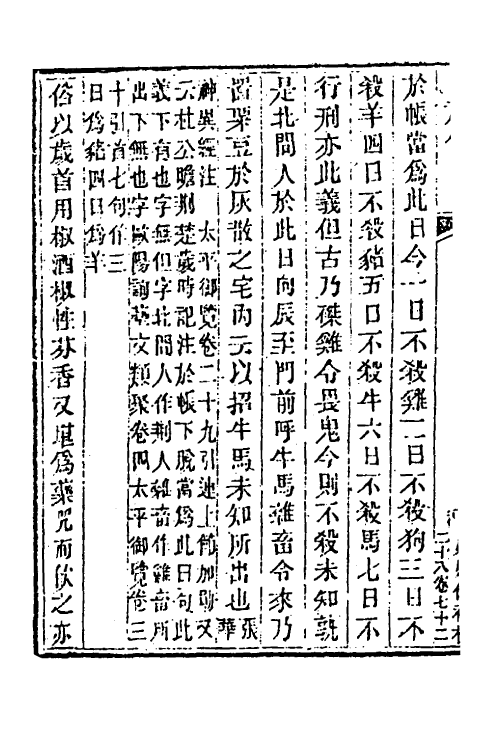 於帳當爲此日今一日不殺雞二日不殺狗三日不
殺羊四日不殺豬五日不殺牛六日不殺馬七日不
行刑亦此義但古乃磔雞令畏鬼今則不殺未知孰
是北間人於此日向辰至門前呼牛馬雜畜令來乃
置粟豆於灰散之宅內云以招牛馬未知所出也張華
神異經注　太平御覽卷二十九引連上節加勗又
云杜公瞻荆楚歲時記注於帳下脫當爲此日句此
義下有也字無但字北間人作荆人雜畜作雜音所
出下無也字歐陽詢藝文類聚卷四太平御覽卷三
十引首七句作三
日爲豬四日爲羊
俗以歲首用椒酒椒性芬香又堪爲藥兄而飲之亦
二十八卷七十二